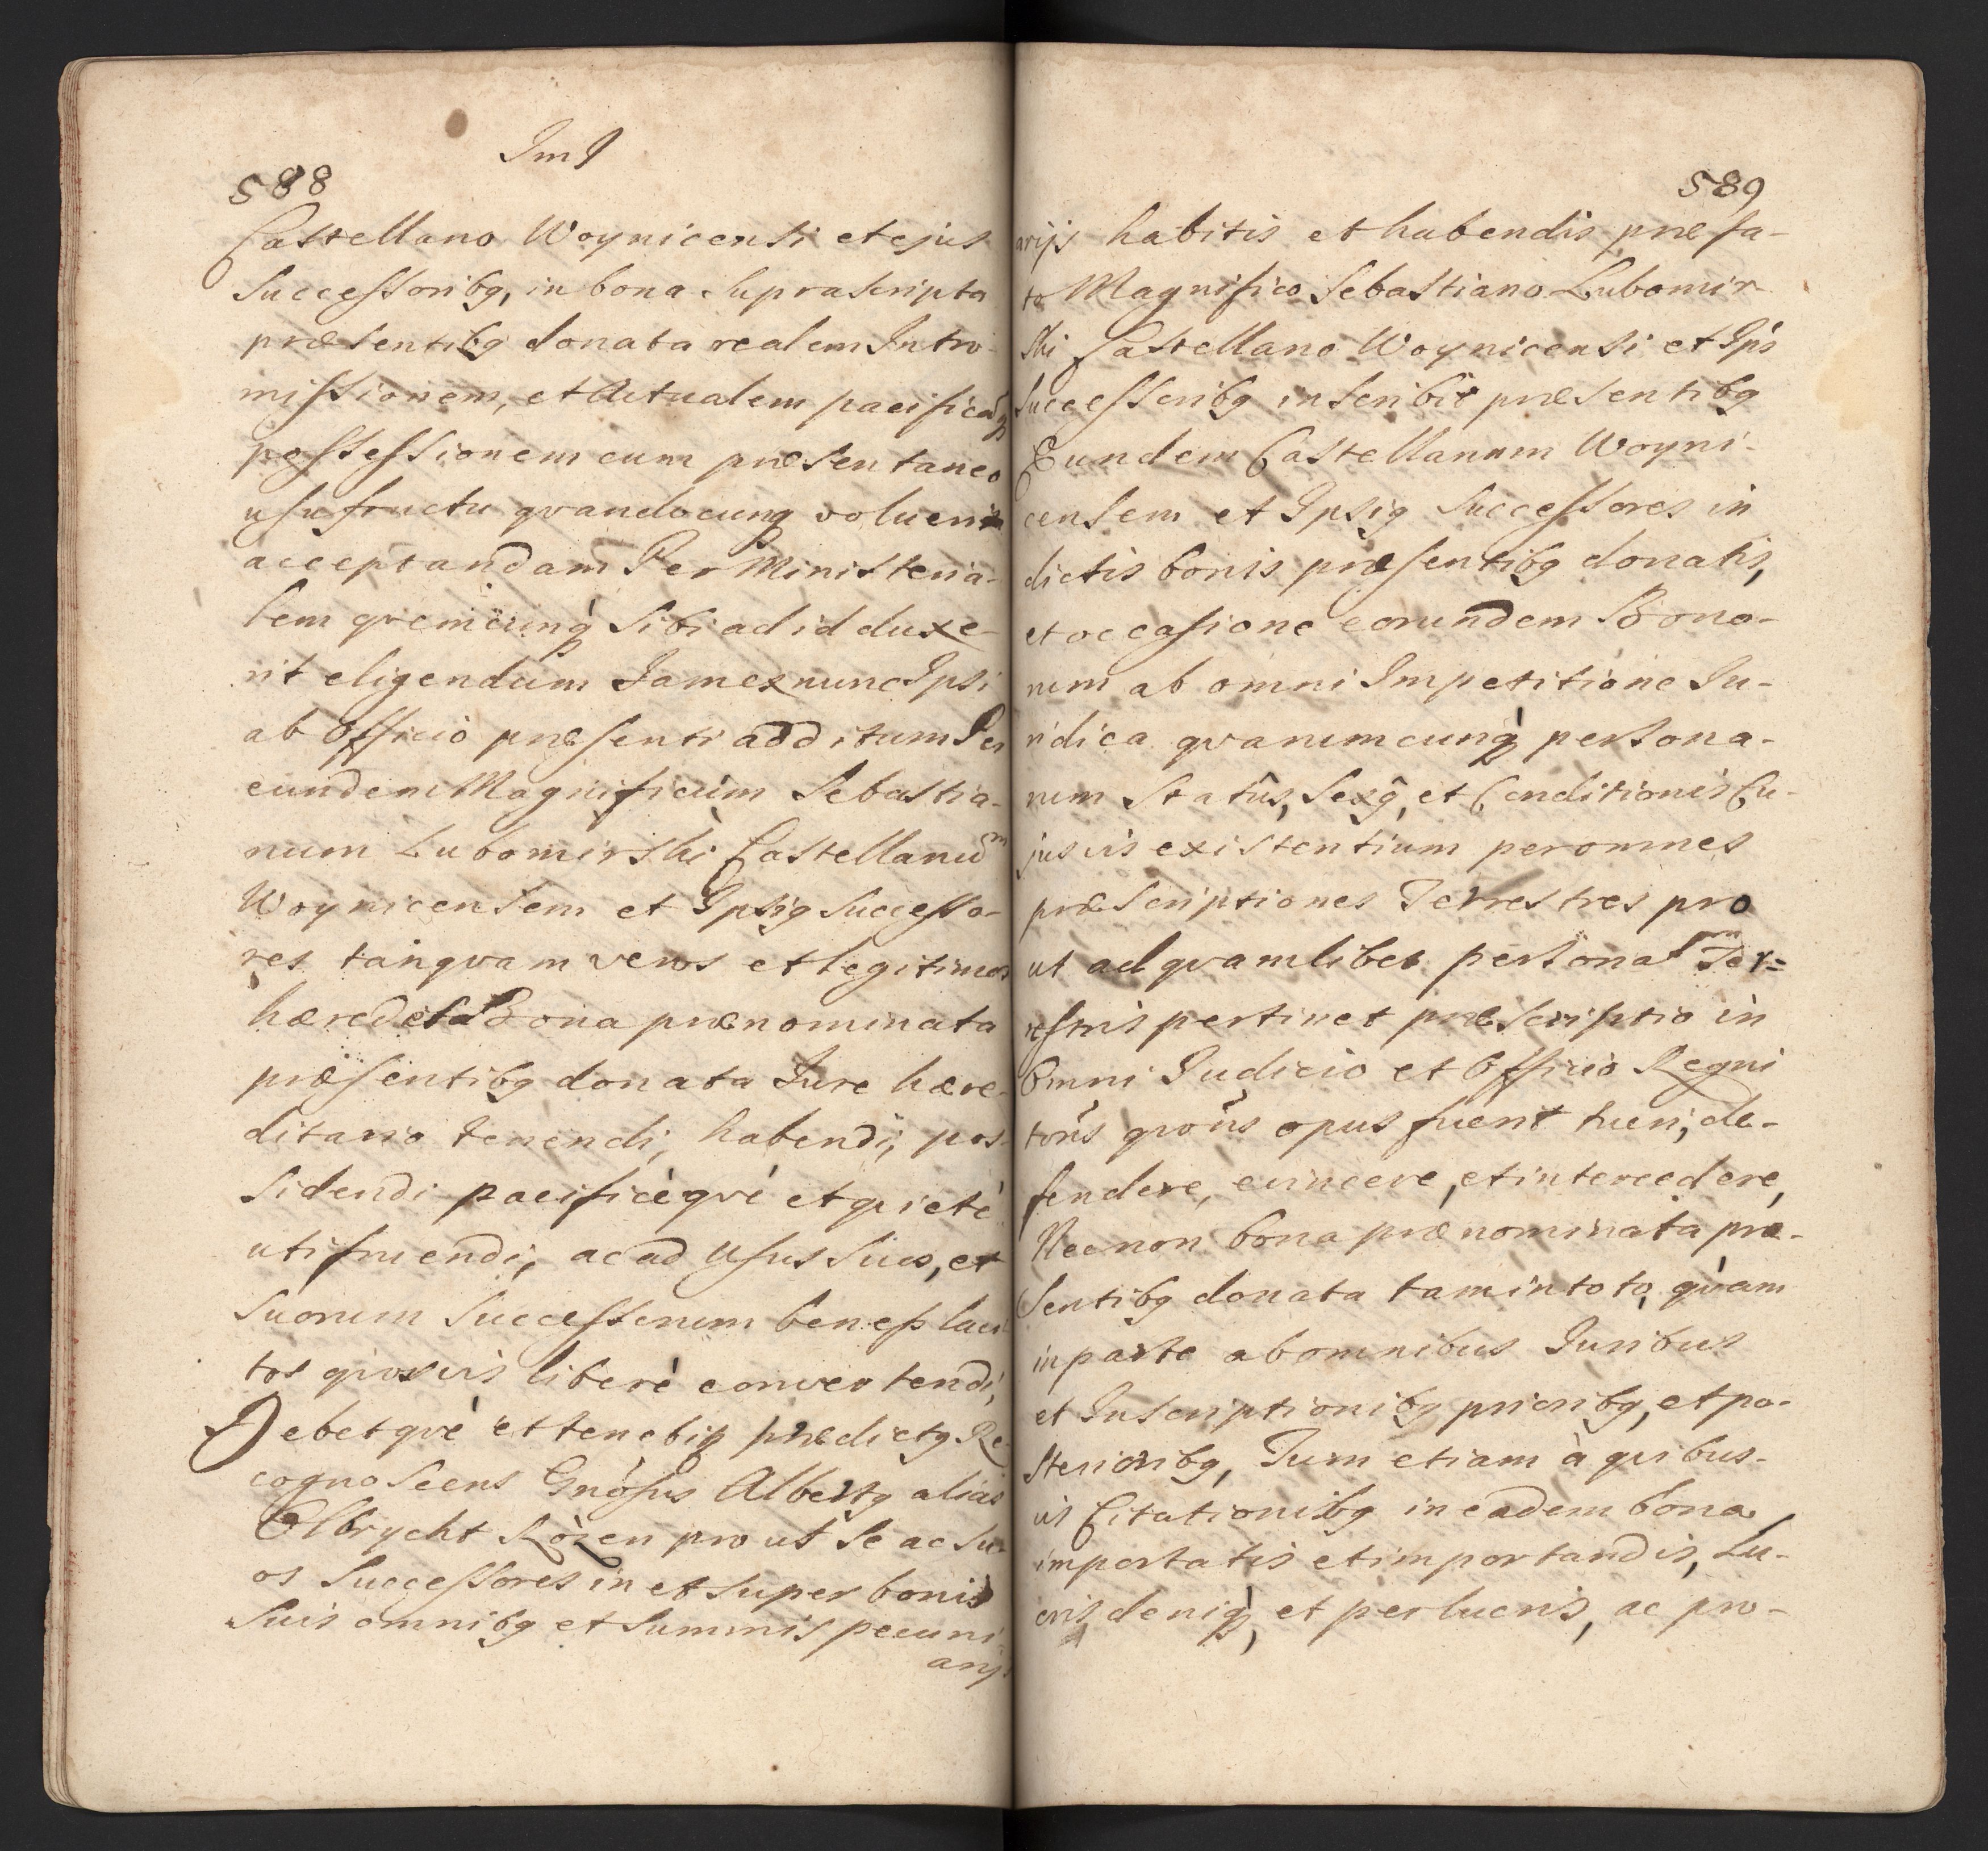 588
Castellano Woynicensi et ejus
Successoribq, in bona suprascripta
præsentibq donata realem Intro-
missionem, et Actualem pacificāq
possessionem cum præsentaneo
usufructu qvandocunq voluerit
acceptandam Per Ministeria-
lem qvemcunq̀ sibi ad id duxe-
rit eligendum Jam ex nunc Ipsi
ab Officio præsenti additum Per
eundem Magnificum Sebastia-
num Lubomirski Castellanum
Woynicensem et Ipsiq Successo-
res tanqvam veros et legitimos
hæredes Bona prænominata
præsentibq donata Jure hære-
ditario tenendi, habendi, pos-
sidendi pacificèqvè et qvietè
utifruendi, ac ad Usus suos, et
suorum Successorum beneplaci-
tos qvosvis liberè convertendi,
Debetqvè et tenebit prædictq Re-
cognoscens Gnosus Albertq alias
Olbrycht Rozen pro ut se ac su-
os Successores in et super bonis
suis omnibq et summis pecuni-
arijs
589
arijs habitis et habendis præfa-
to Magnifico Sebastiano Lubomir-
ski Castellano Woynicensi et Ips
Successoribq inscribit præsentibq
Eundem Castellanum Woyni-
censem et Ipsiq Successores in
dictis bonis præsentibq donatis,
et occasione eorundem Bono-
rum ab omni Impetitione Ju-
ridica qvarumcunq̀ persona-
rum Statûs, Sexq̂, et Conditionis Cu-
jusvis existentium per omnes
præscriptiones Terrestres pro
ut ad qvamlibet personam Ter=
restris pertinet præscriptio in
Omni Judicio et Officio Regni
toties qvoties opus fuerit tueri, de-
fendere, evincere, et intercedere,
Necnon bona prænominata præ-
sentibq donata tam in toto, qvam
in parte ab omnibus Juribus
et Inscriptionibq prioribq, et po-
sterioribq, Tum etiam à qvibus-
vis Citationibq in eadem bona
importatis et importandis, Lu-
cris deniq̀, et perlucris, ac pro-